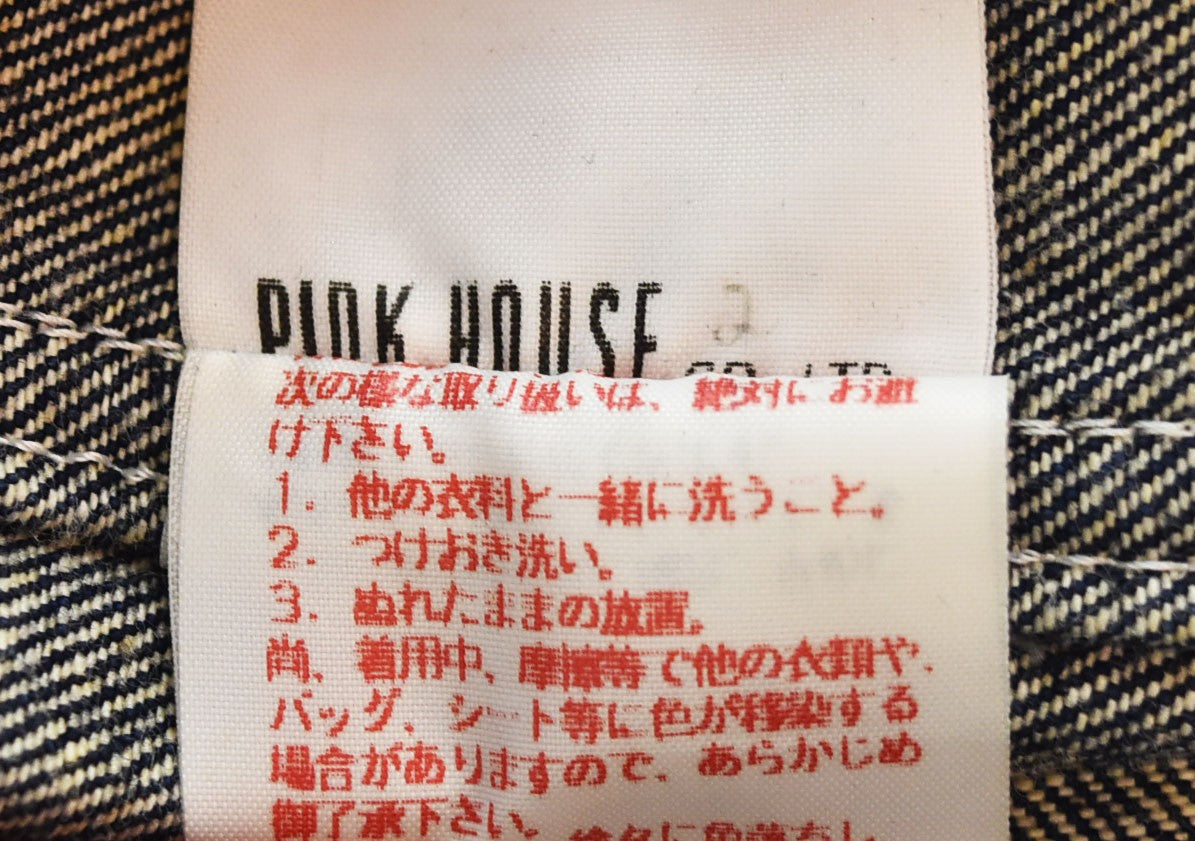 PINK HOUSE CO., LTD
次の様な取り扱いは、絶対にお避
け下さい。
1. 他の衣料と一緒に洗うこと。
2. つけおき洗い。
3. ぬれたままの放置。
尚、着用中、摩擦等で他の衣類や、
バッグ、シート等に色が移染する
場合がありますので、あらかじめ
御了承下さい。